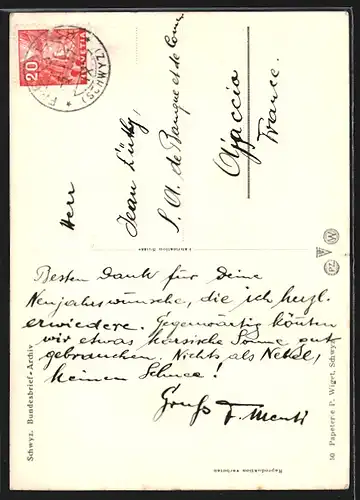 20
HELVETIA
(SCHWYZ)
Herr
Jean Lüthy,
S. A. de Banque et de Comm.
Ajaccio
France.
Besten Dank für Deine
Neujahrswünsche, die ich herzl.
erwiedere. Gegenwärtig könnten
wir etwas korsische Sonne gut
gebrauchen. Nichts als Nebel,
keinen Schnee!
Gruss
Schwyz. Bundesbrief-Archiv
50 Papeterie P. Wiget, Schwyz
Reproduktion verboten